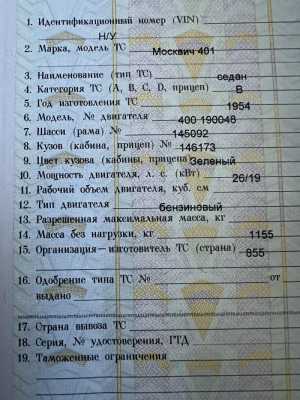 1. Идентификационный номер (VIN)
Н/У
2. Марка, модель ТС Москвич 401
3. Наименование (тип ТС) седан
4. Категория ТС (А, В, С, D, прицеп) В
5. Год изготовления ТС 1954
6. Модель, № двигателя 400 190048
7. Шасси (рама) № 145092
8. Кузов (кабина, прицеп) № 146173
9. Цвет кузова (кабины, прицепа) Зеленый
10. Мощность двигателя, л. с. (кВт) 26/19
11. Рабочий объем двигателя, куб. см
12. Тип двигателя бензиновый
13. Разрешенная максимальная масса, кг
14. Масса без нагрузки, кг 1155
15. Организация—изготовитель ТС (страна) 855
16. Одобрение типа ТС № от
выдано
17. Страна вывоза ТС
18. Серия, № удостоверения, ГТД
19. Таможенные ограничения